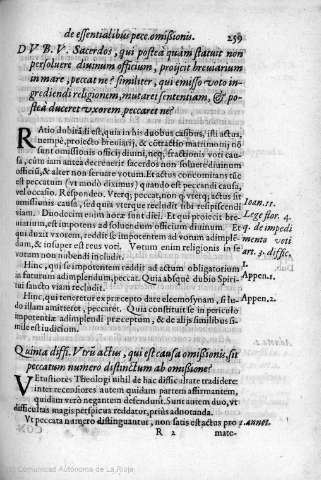 de essentialibus pecc. omissionis. 259
DVB. V. Sacerdos, qui posteà quàm statuit non
persoluere diuinum officium, proijcit breuiarium
in mare, peccat ne? similiter, qui emisso voto in-
grediendi religionem, mutarei sententiam, & po-
steà duceret vxorem, peccaret ne?
RAtio dubitādi est, quia in his duobus casibus, isti actus,
nempè, proiecto breuiarij, & cōtractio matrimonij nō
sunt omissionis officij diuini, neq; fractionis voti cau-
sa, cùm iam antea decreuerit sacerdos non soluere diuinum
officiū, & alter non seruare votum. Et actus concomitans tūc
est peccatum (vt modò diximus) quando est peccandi causa,
vel occasio. Respondeo. Vterq; peccat, non quòd vterq; actus sit
omissionis causa, sed quia vterque recludit sibi resipiscendi
viam. Duodecim enim horæ sunt diei. Et qui proijcit bre-
uiarium, est impotens ad soluendum officium diuinum. Et
qui duxit vxorem, reddit se impotentem ad votum adimplē-
dam, & insuper est reus voti. Votum enim religionis in se
votum non nubendi includit.
Ioan. 11.
Lege flor. 4.
q. de impedi
mento voti
art. 3. diffic.
1.
Hinc, qui se impotentem reddit ad actum obligatorium
in futurum adimplendum, peccat. Quia absquè dubio Spiri-
tui sancto viam recludit.
Appen. 1.
Hinc, qui teneretur ex præcepto dare eleemosynam, si lu-
do illam amitteret, peccaret. Quia constituit se in periculo
impotentiæ adimplendi præceptum, & de alijs similibus si-
mile est iudicium.
Appen. 2.
Quinta diffi. Vtrū actus, qui est causa omissionis, sit
peccatum numero distinctum ab omissione?
VEtustiores Theologi nihil de hac diffic. disertè tradidere:
inter recentiores autem quidam partem affirmantem,
quidam verò negantem defendunt. Sunt autem duo, vt
difficultas magis perspicua reddatur, priùs adnotanda.
Vt peccata numero distinguantur, non satis est actus pro
1. annot.
R 2 mate-
Comunidad Autónoma de La Rioja